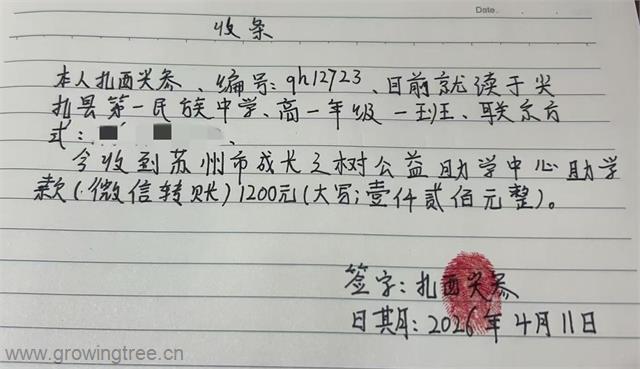 Date.
收条
本人扎西尖参、编号:qh12723、目前就读于尖
扎县第一民族中学、高一年级一班、联系方
式:
今收到苏州市成长之树公益助学中心助学
款(微信转账)1200元(大写;壹仟贰佰元整)。
签字:扎西尖参
日期:2026年4月11日
www.growingtree.cn